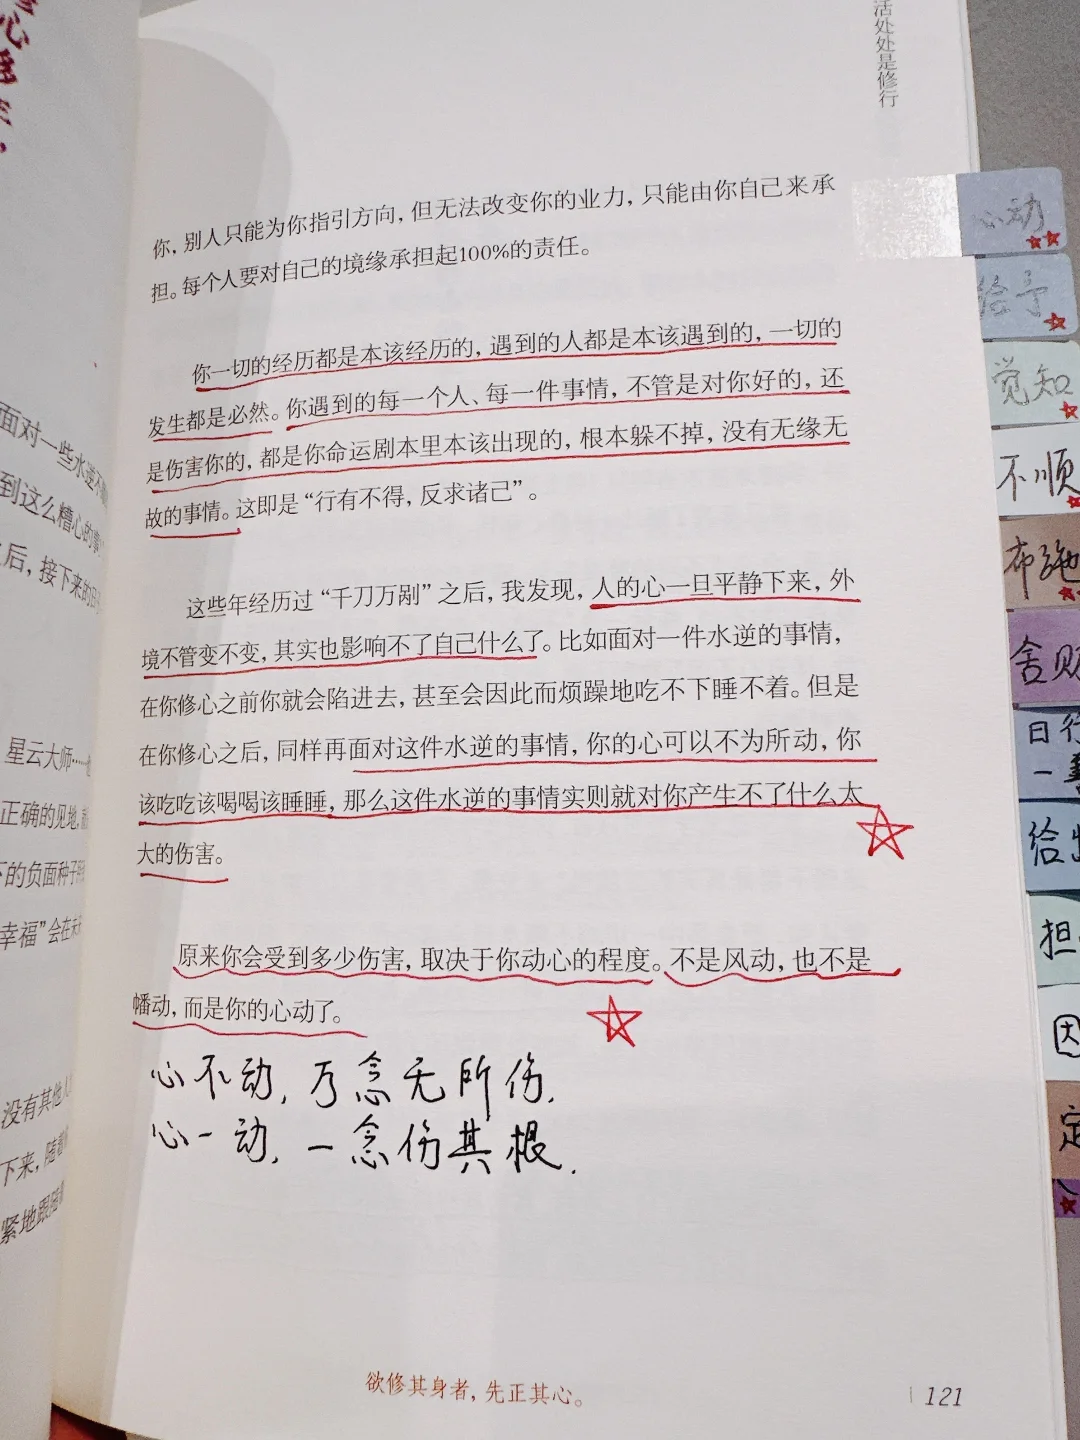 活处处是修行
你，别人只能为你指引方向，但无法改变你的业力，只能由你自己来承
担。每个人要对自己的境缘承担起100%的责任。
你一切的经历都是本该经历的，遇到的人都是本该遇到的，一切的
发生都是必然。你遇到的每一个人、每一件事情，不管是对你好的，还
是伤害你的，都是你命运剧本里本该出现的，根本躲不掉，没有无缘无
故的事情。这即是“行有不得，反求诸己”。
这些年经历过“千刀万剐”之后，我发现，人的心一旦平静下来，外
境不管变不变，其实也影响不了自己什么了。比如面对一件水逆的事情，
在你修心之前你就会陷进去，甚至会因此而烦躁地吃不下睡不着。但是
在你修心之后，同样再面对这件水逆的事情，你的心可以不为所动，你
该吃吃该喝喝该睡睡，那么这件水逆的事情实则就对你产生不了什么太
大的伤害。
原来你会受到多少伤害，取决于你动心的程度。不是风动，也不是
幡动，而是你的心动了。
心不动，万念无所伤．
心一动，一念伤其根．
欲修其身者，先正其心。
121
面对一些水逆不
到这么糟心的事
后，接下来的日
星云大师……
正确的见地，
下的负面种子
幸福”会在未
没有其他人
下来，随着
紧地跟随
心动
给予
觉知
不顺
布施
舍财
日行
一善
给出
担
因
定